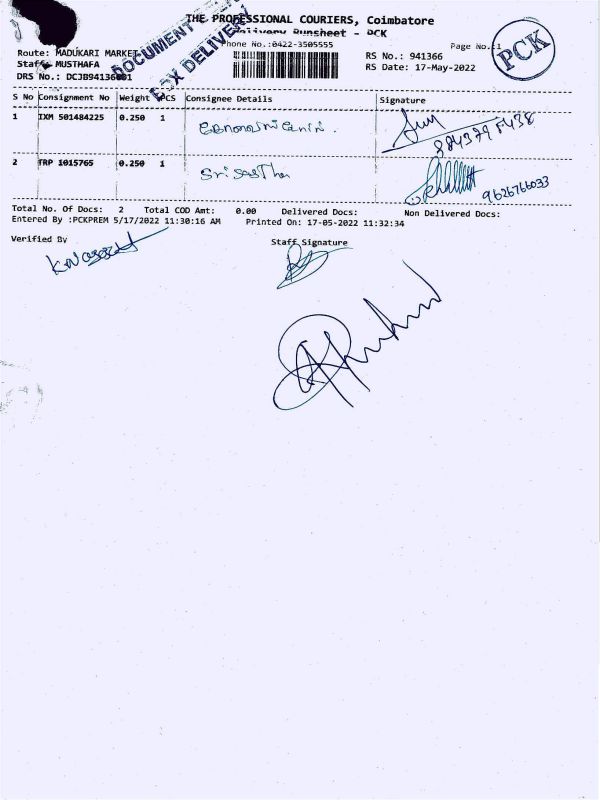 THE PROFESSIONAL COURIERS, Coimbatore
Delivery Runsheet - PCK
DOCUMENT
BOX DELIVERY
Phone No.:0422-3505555
Page No.:1
PCK
Route: MADUKARI MARKET
RS No.: 941366
Staff: MUSTHAFA
RS Date: 17-May-2022
DRS No.: DCJB94136601
S No Consignment No Weight PCS Consignee Details Signature
1 IXM 501484225 0.250 1
8843798438
2 TRP 1015765 0.250 1 Sri Sastha
9626766033
Total No. Of Docs: 2 Total COD Amt: 0.00 Delivered Docs: Non Delivered Docs:
Entered By :PCKPREM 5/17/2022 11:30:16 AM Printed On: 17-05-2022 11:32:34
Verified By Staff Signature